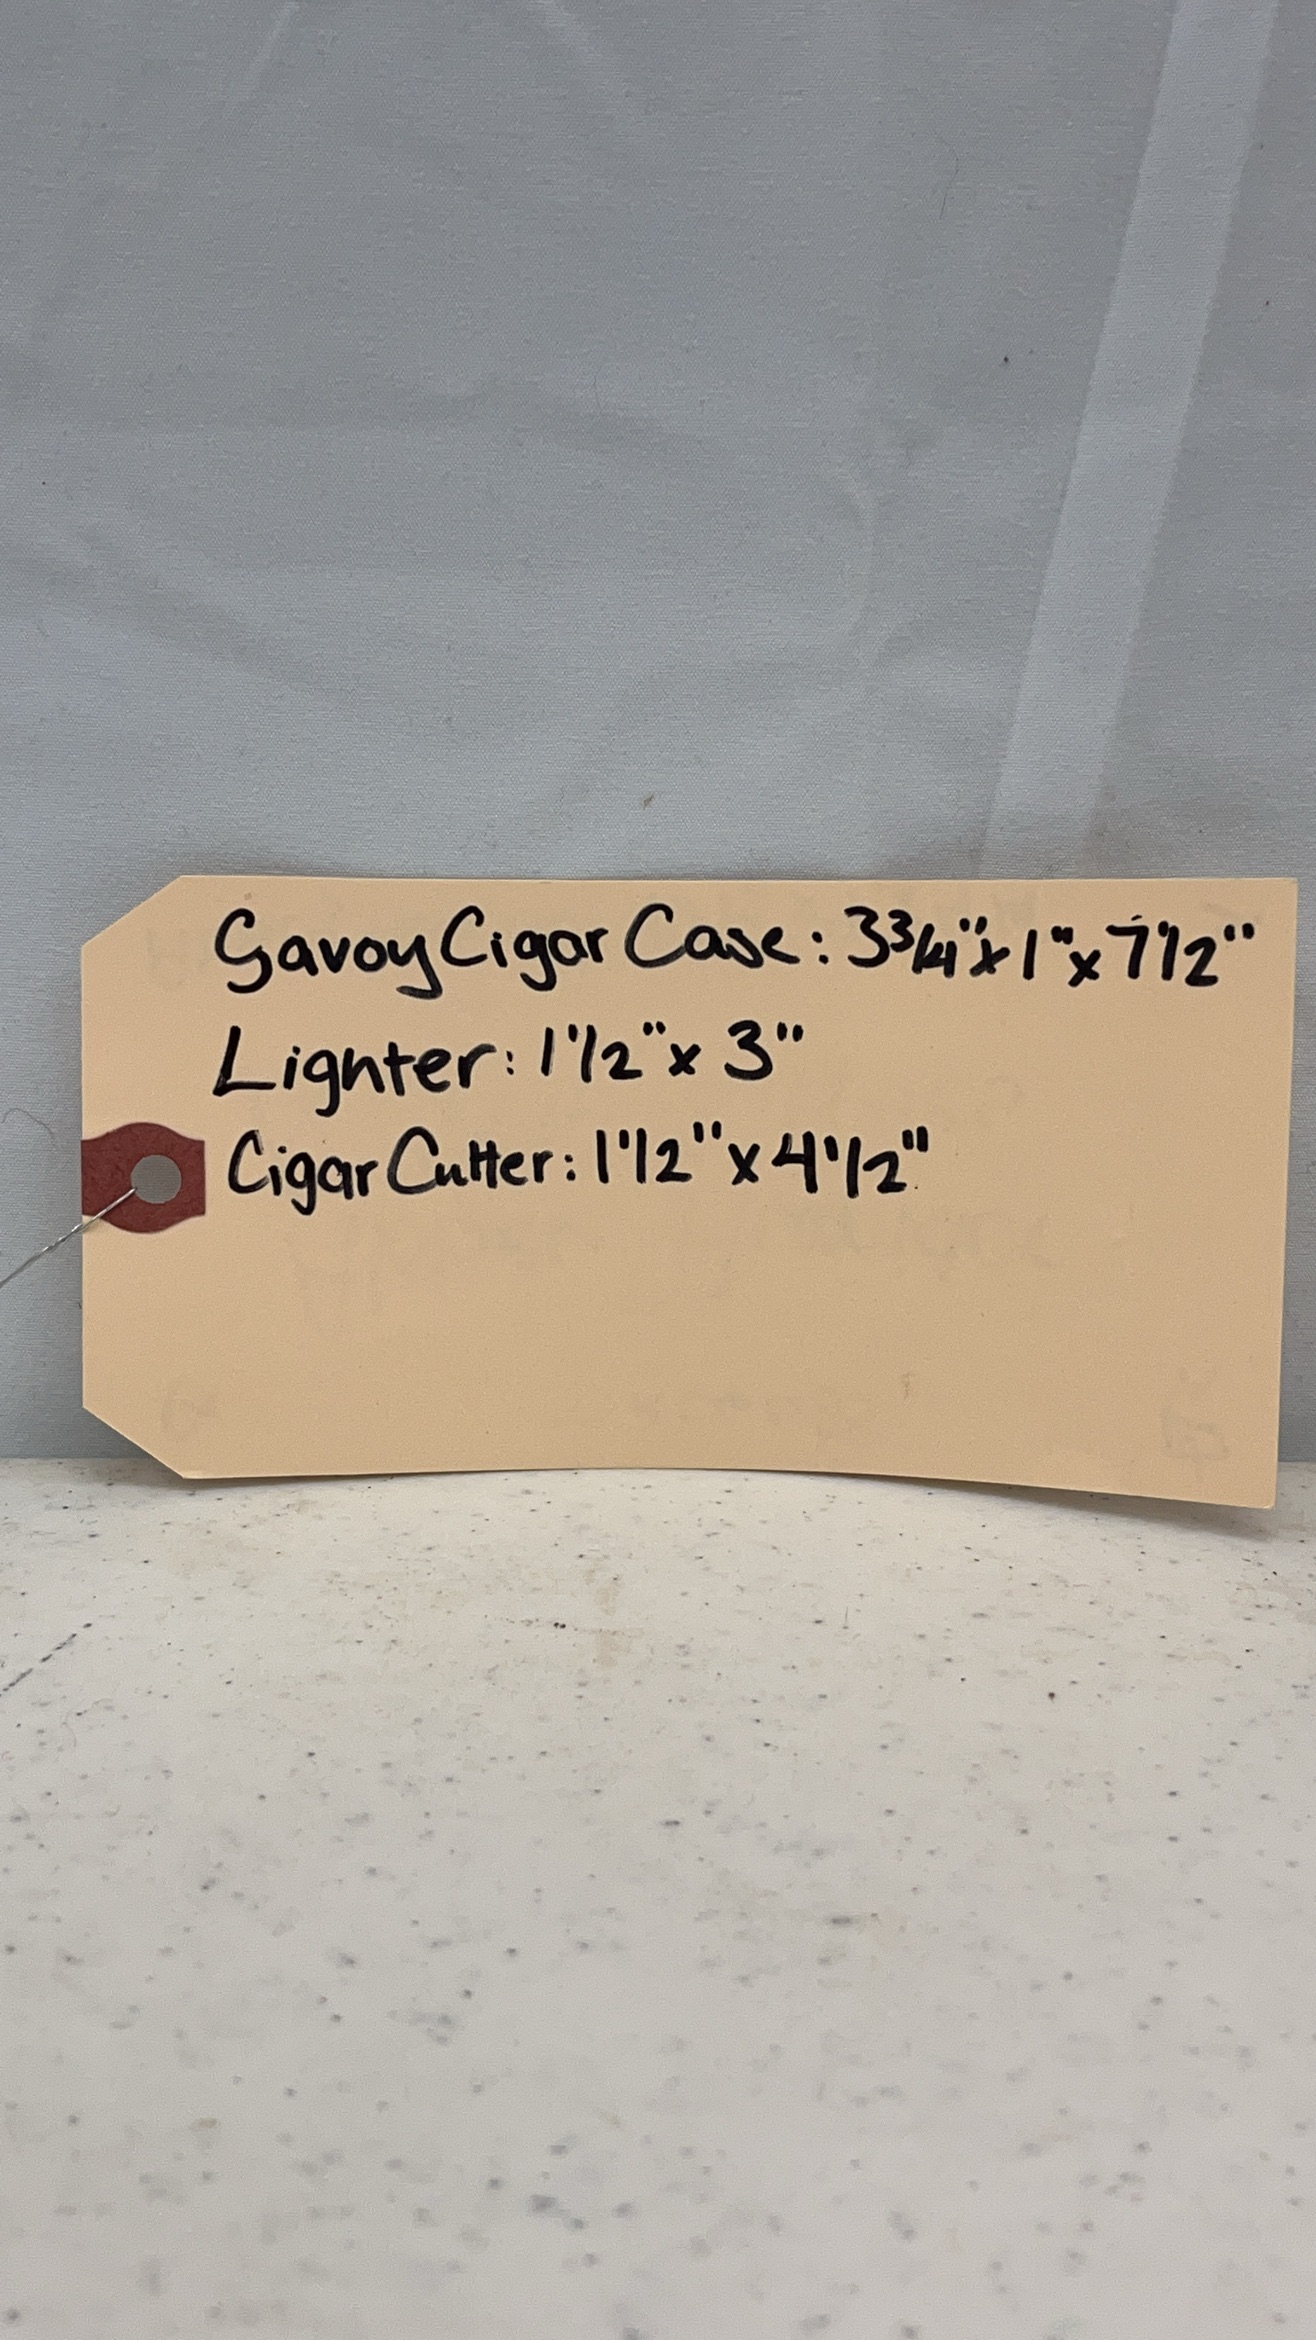 Savoy Cigar Case: 3 3/4" x 1" x 7 1/2"
Lighter: 1 1/2" x 3"
Cigar Cutter: 1 1/2" x 4 1/2"